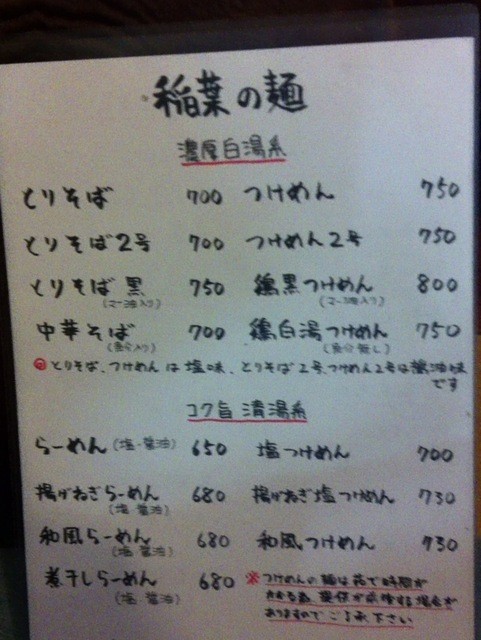 稲葉の麺
濃厚白湯系
とりそば 700 つけめん 750
とりそば2号 700 つけめん2号 750
とりそば 黒 750 鶏黒つけめん 800
(マー油入り) (マー油入り)
中華そば 700 鶏白湯つけめん 750
(魚介入り) (魚介無し)
とりそば、つけめんは塩味、とりそば2号、つけめん2号は醤油味
です
コク旨 清湯系
らーめん (塩・醤油) 650 塩つけめん 700
揚げねぎらーめん 680 揚げねぎ塩つけめん 730
(塩 醤油)
和風らーめん 680 和風つけめん 730
(塩 醤油)
煮干しらーめん 680 ※つけめんの麺は茹で時間が
(塩 醤油) かかる為、提供が前後する場合が
ありますのでご了承下さい